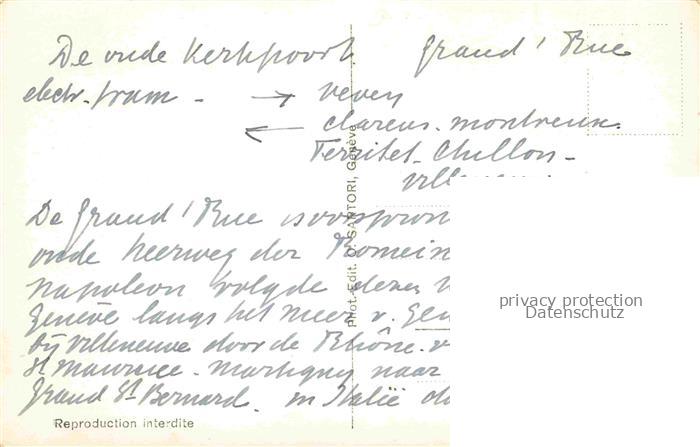 De oude Kerkpoort. Grand' Rue
electr. tram - → Vevey
← Clarens - Montreux
Territet - Chillon -
De Grand' Rue is oorspron
oude heerweg der Romein
Napoleon volgde dezen
Genève langs het Meer v. Gen
bij Villeneuve door de Rhône - v
St Maurice - Martigny naar
Grand St Bernard. in Italië
Phot.-Edit. O. SARTORI, Genève
privacy protection
Datenschutz
Reproduction interdite